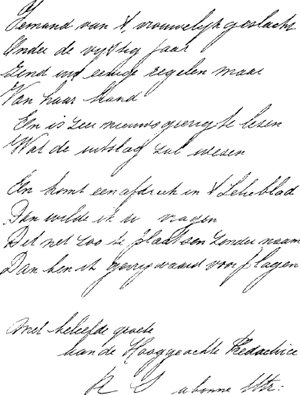 Iemand van 't vrouwelijk geslacht
Onder de vijftig jaar
Zend uw eenige regelen maar
Van haar hand
En is zeer nieuwsgierig te lezen
Wat de uitslag zal wezen
En komt een afdruk in 't Leesblad
Dan wilde ik u vragen
Dit net zoo te plaatsen zonder naam
Dan ben ik gevrijwaard voor plagen
Met beleefde groete
van de Hooggeachte Redactrice
R S abonne Utr: